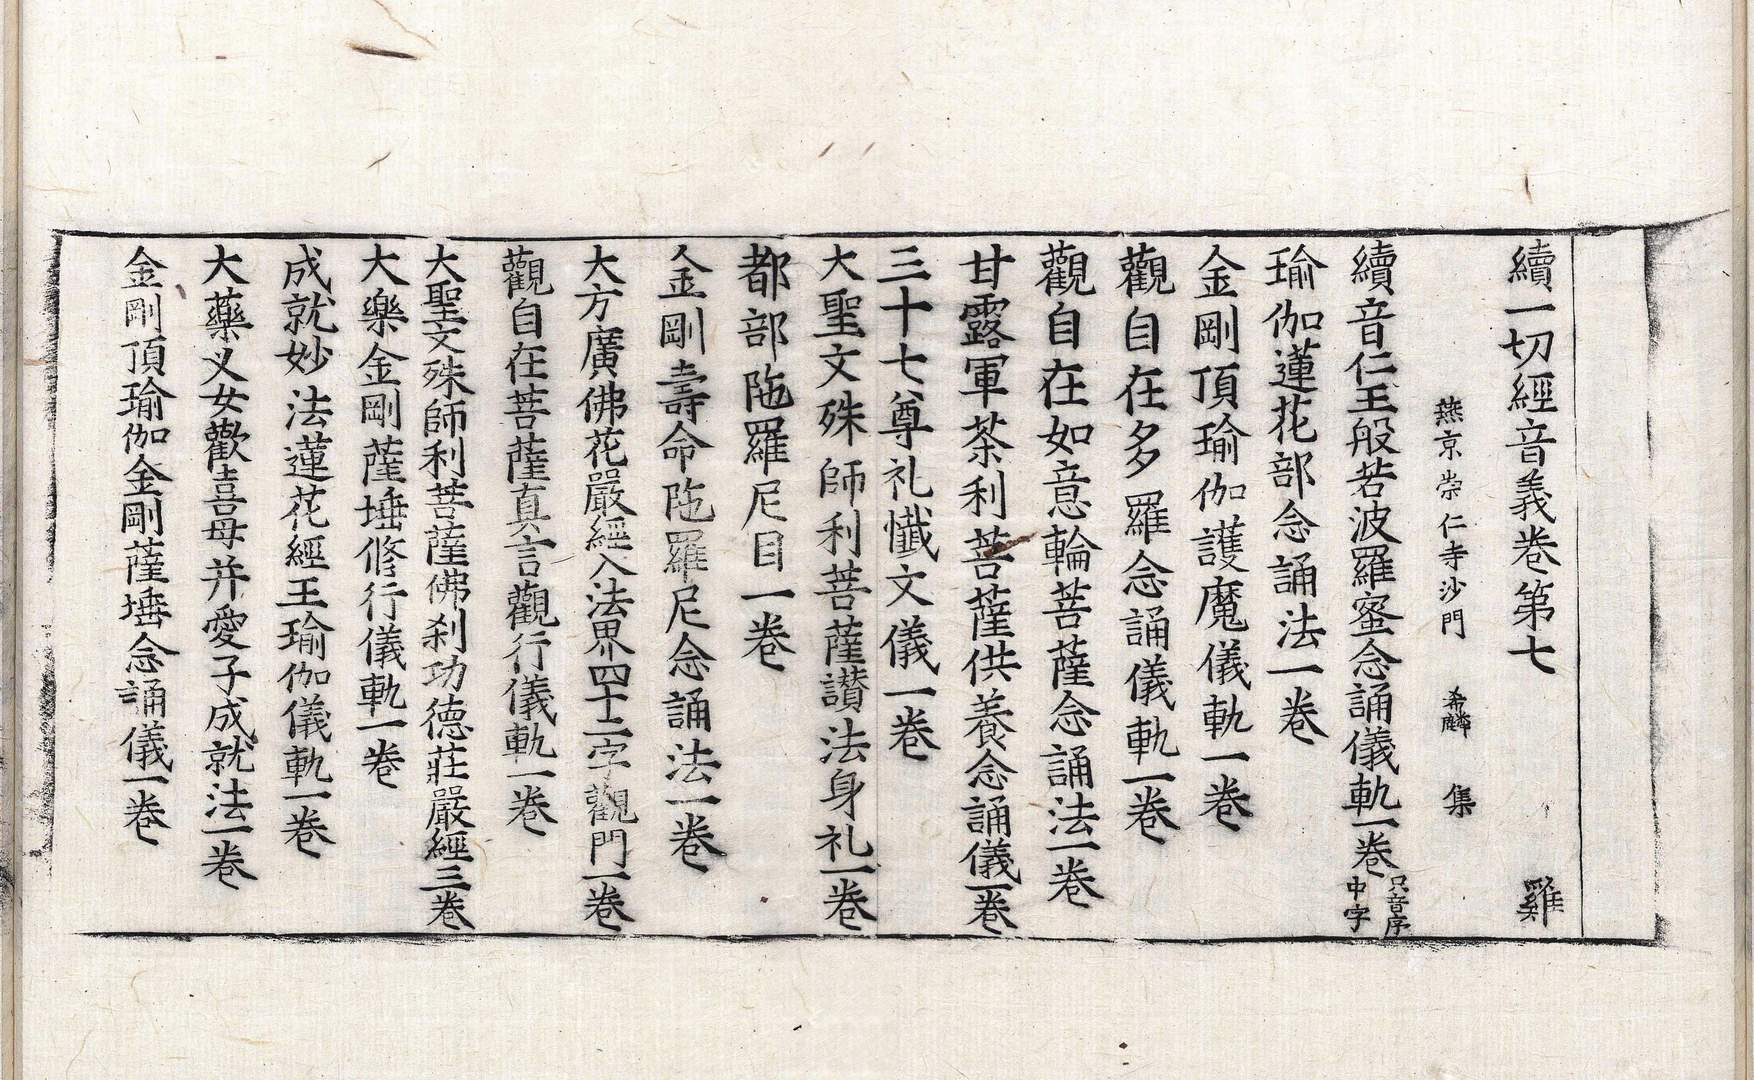 續一切經音義卷第七 雞
燕京崇仁寺沙門 希麟 集
續音仁王般若波羅蜜念誦儀軌一卷 只音序中字
瑜伽蓮花部念誦法一卷
金剛頂瑜伽護魔儀軌一卷
觀自在多羅念誦儀軌一卷
觀自在如意輪菩薩念誦法一卷
甘露軍茶利菩薩供養念誦儀一卷
三十七尊礼懺文儀一卷
大聖文殊師利菩薩讃法身礼一卷
都部陁羅尼目一卷
金剛壽命陁羅尼念誦法一卷
大方廣佛花嚴經入法界四十二字觀門一卷
觀自在菩薩真言觀行儀軌一卷
大聖文殊師利菩薩佛刹功德莊嚴經三卷
大樂金剛薩埵修行儀軌一卷
成就妙法蓮花經王瑜伽儀軌一卷
大藥叉女歡喜母并愛子成就法一卷
金剛頂瑜伽金剛薩埵念誦儀一卷